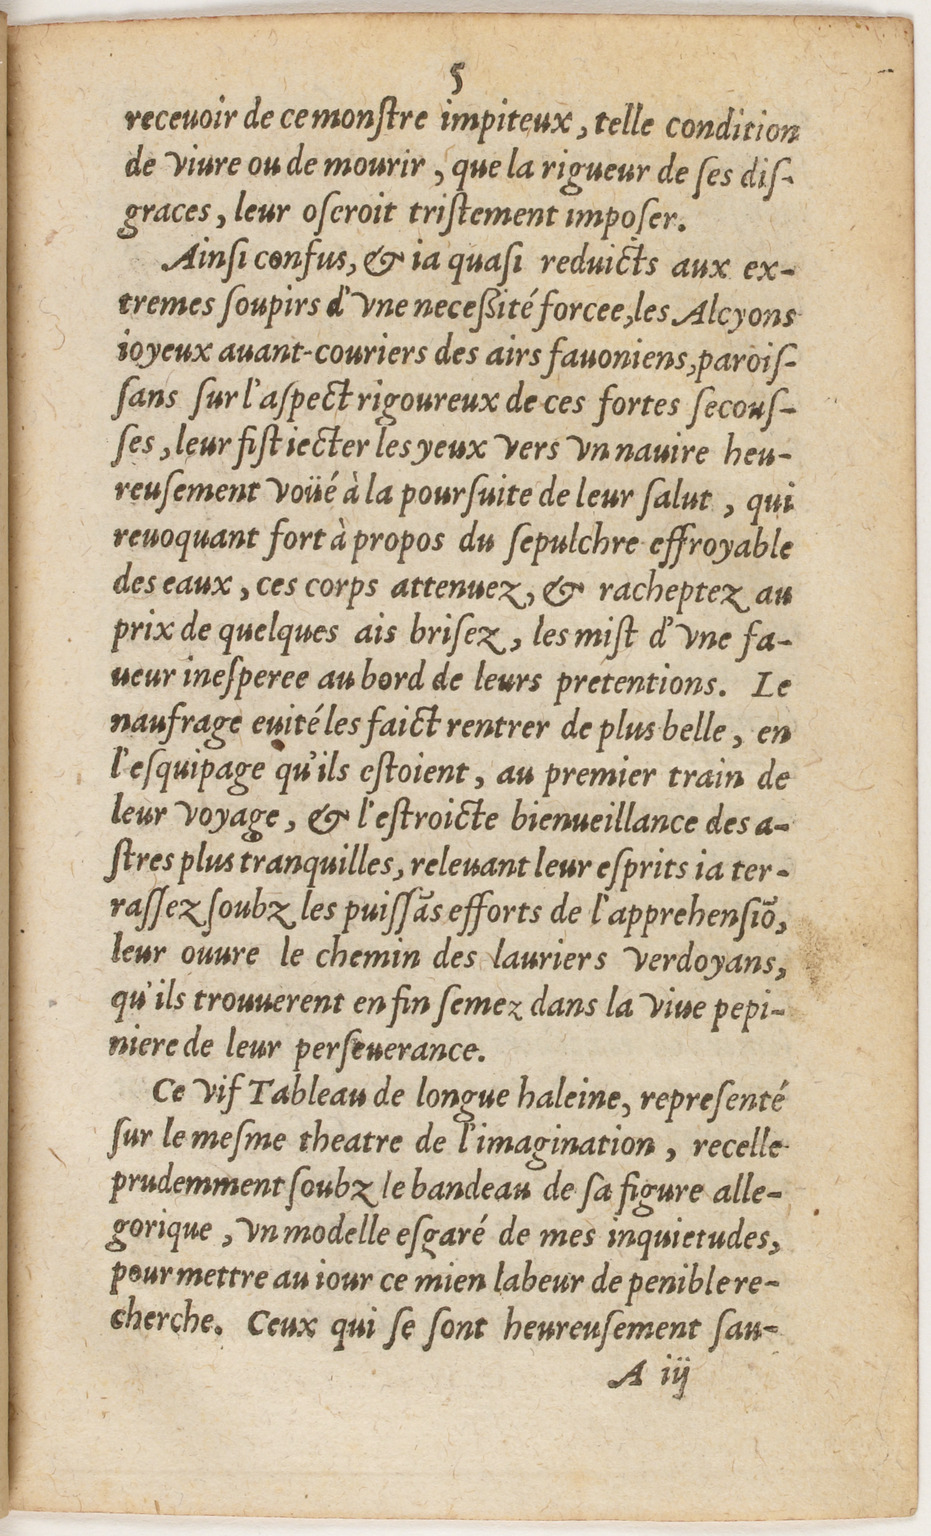 5
receuoir de ce monſtre impiteux, telle condition
de viure ou de mourir, que la rigueur de ſes diſ-
graces, leur oſeroit triſtement impoſer.
Ainſi confus, & ia quaſi reduicts aux ex-
tremes ſoupirs d'vne neceſſité forcee, les Alcyons
ioyeux auant-couriers des airs fauoniens, paroiſ-
ſans ſur l'aſpect rigoureux de ces fortes ſecouſ-
ſes, leur fiſt iecter les yeux vers vn nauire heu-
reuſement voüé à la pourſuite de leur ſalut, qui
reuoquant fort à propos du ſepulchre effroyable
des eaux, ces corps attenuez, & racheptez au
prix de quelques ais briſez, les miſt d'vne fa-
ueur ineſperee au bord de leurs pretentions. Le
naufrage euité les faict rentrer de plus belle, en
l'eſquipage qu'ils eſtoient, au premier train de
leur voyage, & l'eſtroicte bienueillance des a-
ſtres plus tranquilles, releuant leur eſprits ia ter-
raſſez ſoubz les puiſſãs efforts de l'apprehenſiõ,
leur ouure le chemin des lauriers verdoyans,
qu'ils trouuerent en fin ſemez dans la viue pepi-
niere de leur perſeuerance.
Ce vif Tableau de longue haleine, repreſenté
ſur le meſme theatre de l'imagination, recelle
prudemment ſoubz le bandeau de ſa figure alle-
gorique, vn modelle eſgaré de mes inquietudes,
pour mettre au iour ce mien labeur de penible re-
cherche. Ceux qui ſe ſont heureuſement ſau-
A iij